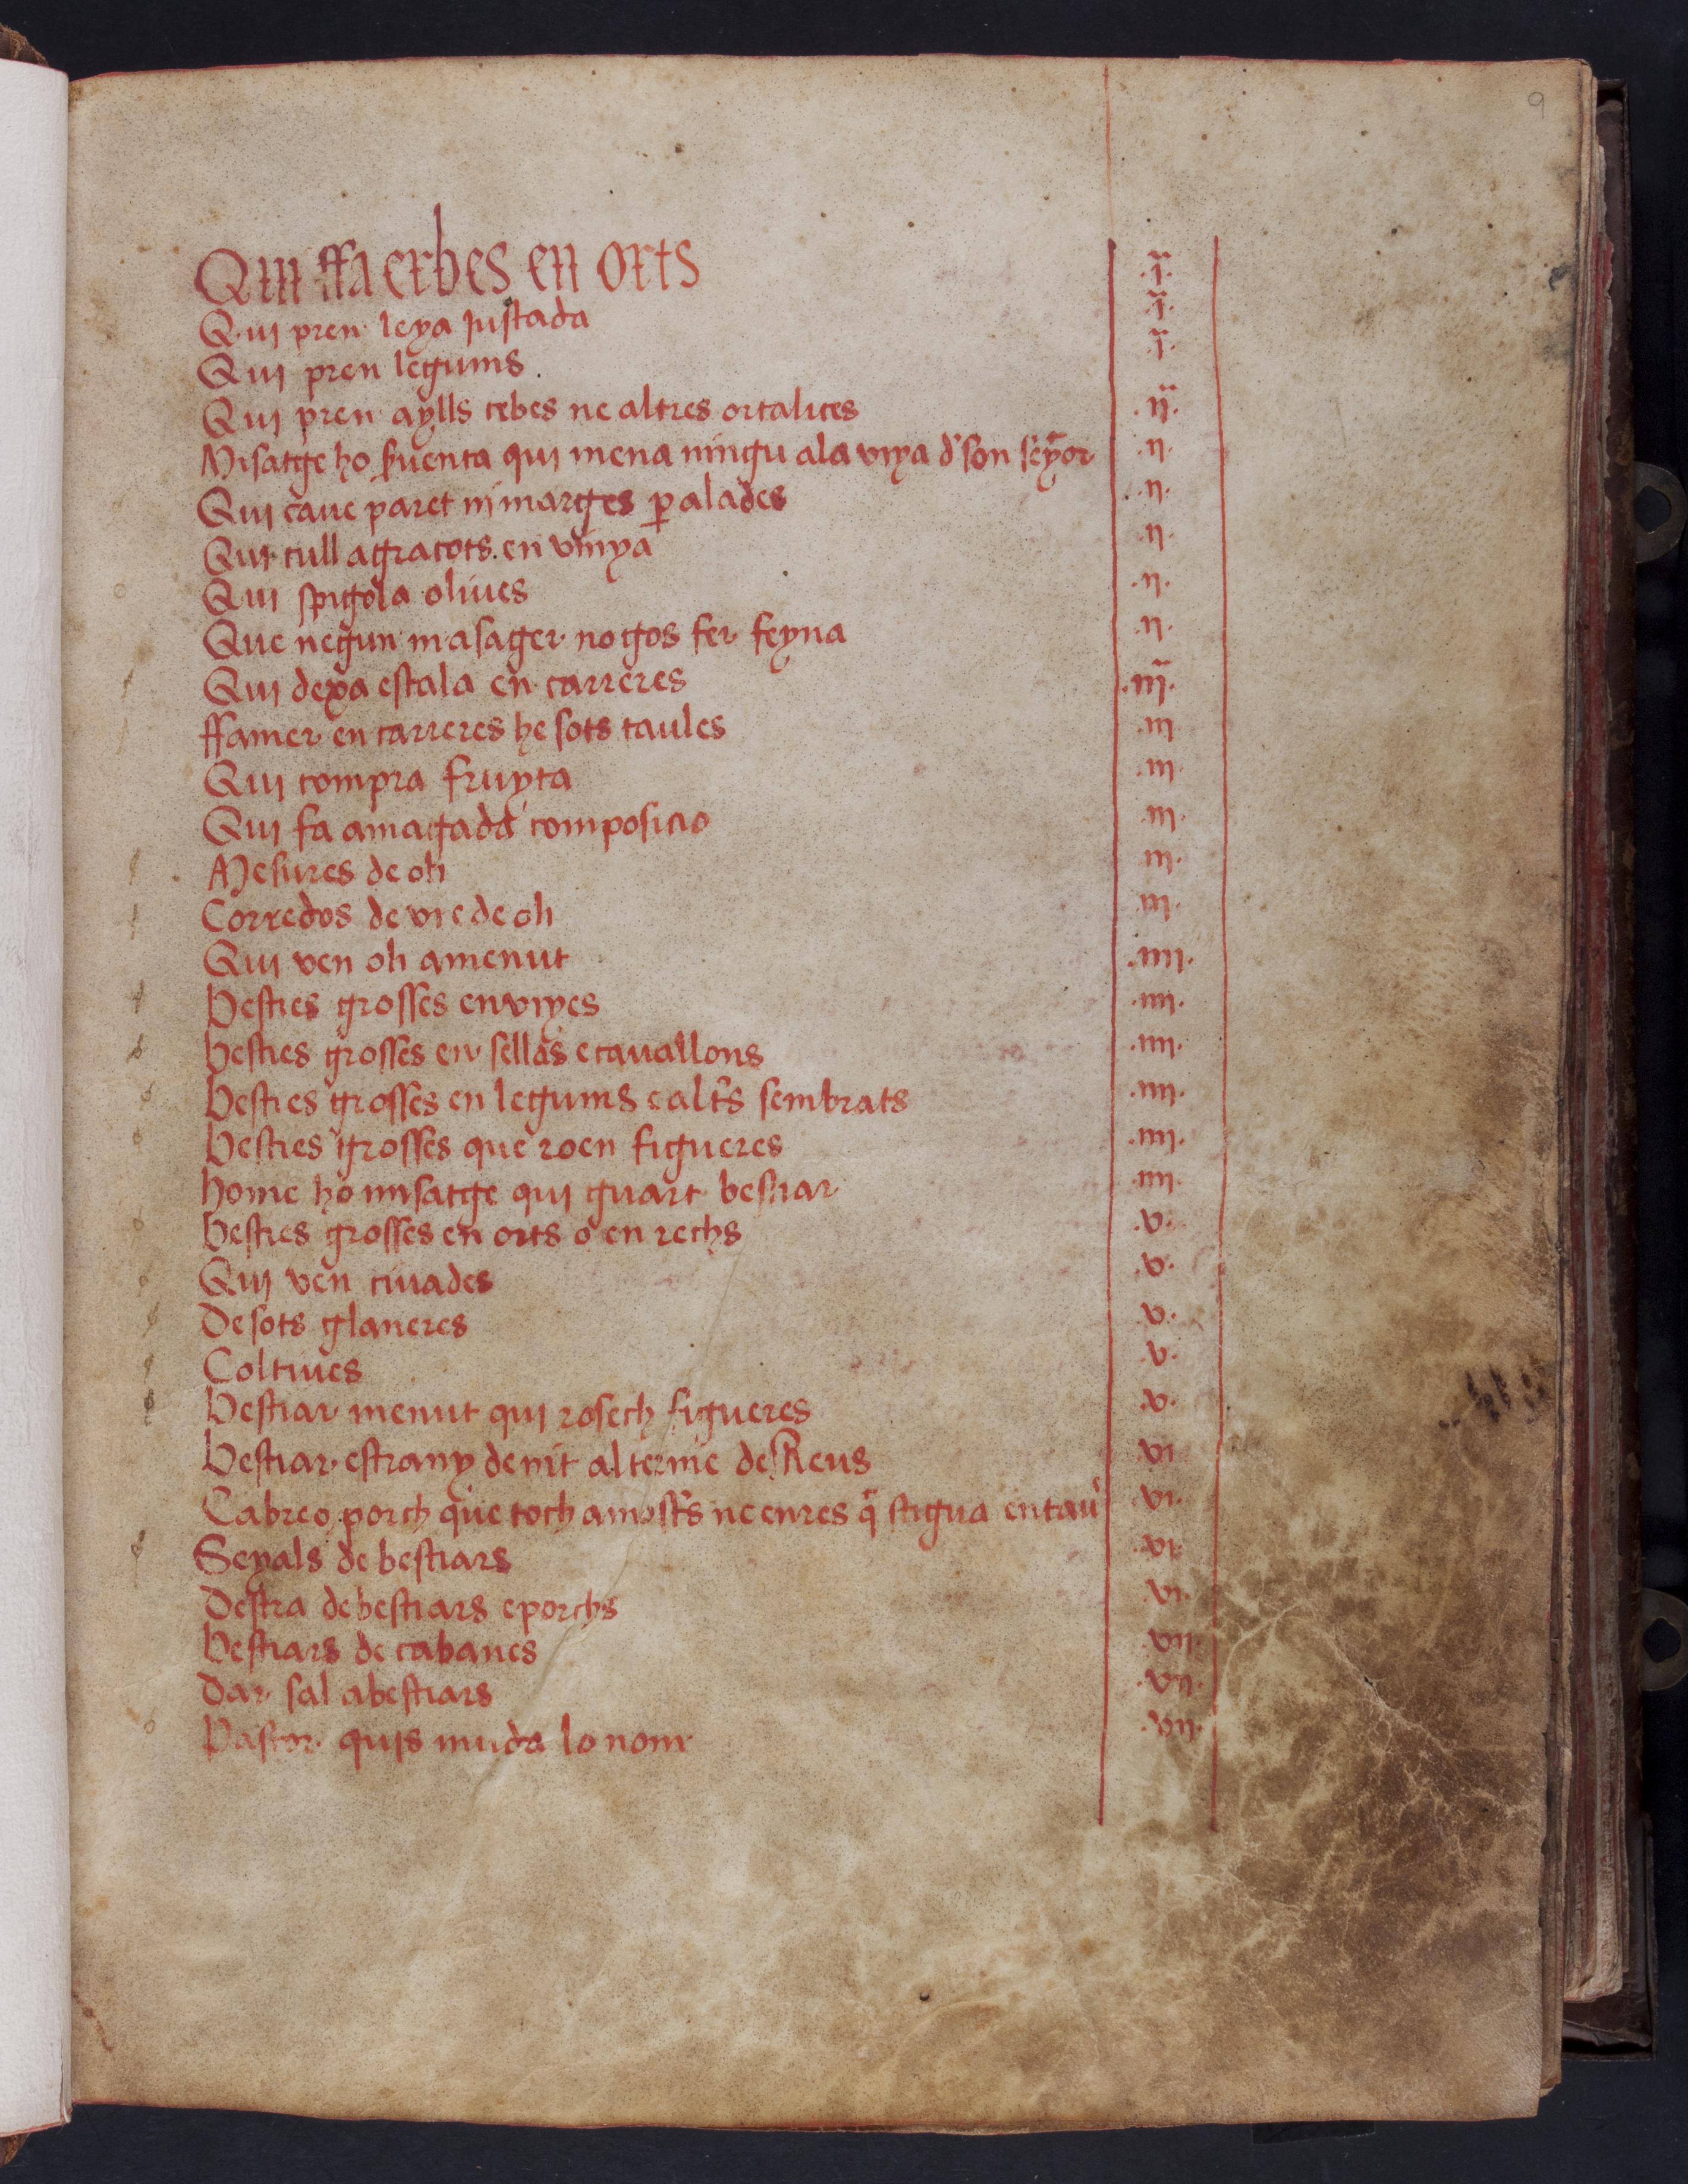 9
Qui ffa erbes en orts .j.
Qui pren leya justada .j.
Qui pren legums .j.
Qui pren aylls cebes ne altres ortalices .ij.
Misatge ho fventa qui mena ningu ala viya d' son seyor .ij.
Qui cave paret ni marges palades .ij.
Qui cull agraçots en vinya .ij.
Qui spigola olives .ij.
Que negun masager no gos fer feyna .ij.
Qui dexa estala en carreres .iij.
ffamer en carreres he sots taules iij
Qui compra fruyta iij
Qui fa amagada composicio iij
Mesures de oli iij.
Corredos de vi e de oli iij.
Qui ven oli amenut .iiij.
Besties grosses en viyes .iiij.
besties grosses en sellas e cavallons .iiij.
Besties grosses en legums e alts sembrats .iiij.
Besties grosses que roen figueres .iiij.
home ho misatge qui guart bestiar iiij.
besties grosses en orts o en rechs .v.
Qui ven civades .v.
De sots glaneres .v.
Coltives .v.
Bestiar menut qui rosech figueres .v.
Bestiar estrany de nit al terme de Reus vi
Cabre o porch que toch a mosts ne en res q stigua en tau vi.
Seyals de bestiars .vi.
Destra de bestiars e porchs vi.
Bestiars de cabanes .vii.
Dar sal a bestiars .vii.
Pastor quis muda lo nom .vii.